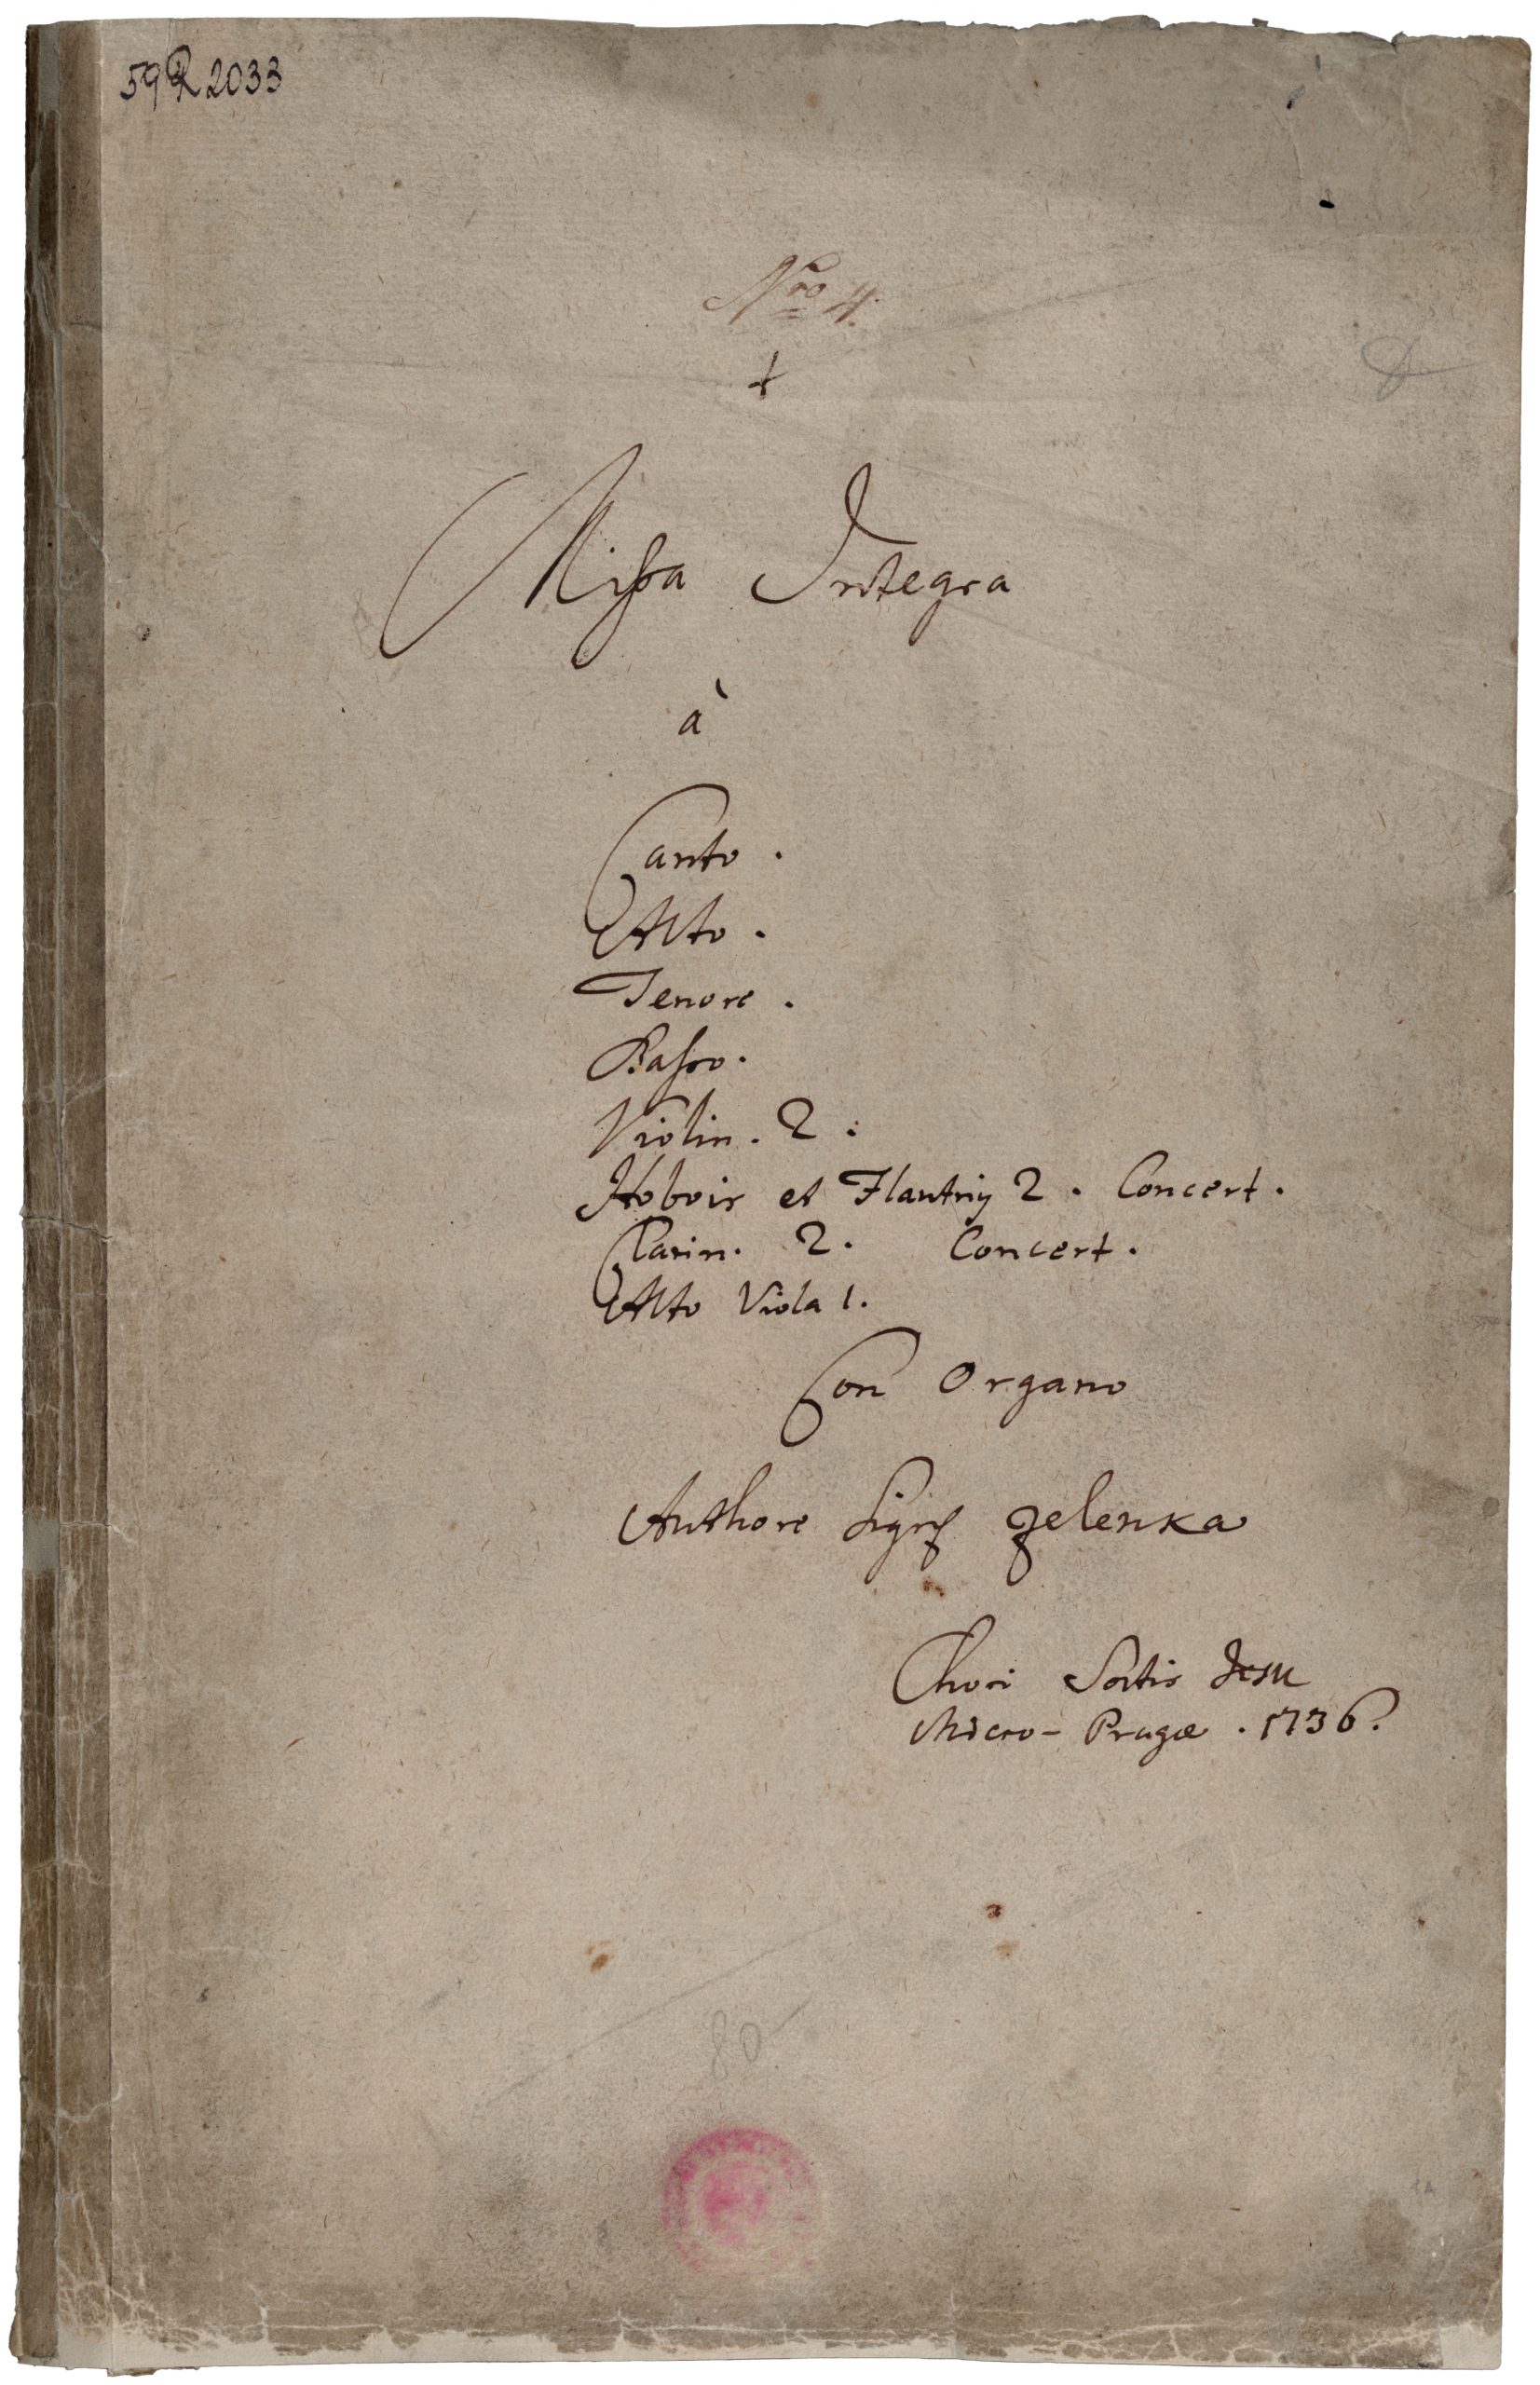 59 R 2033
Nro 4.
Missa Integra
à
Canto .
Alto .
Tenore .
Basso .
Violin . 2 .
Hobois et Flautriy 2 . Concert .
Clarin . 2 . Concert .
Alto Viola 1 .
Con Organo
Authore Sigre Zelenka
Chori Sortis Jesu
Micro - Pragæ . 1736 .
80